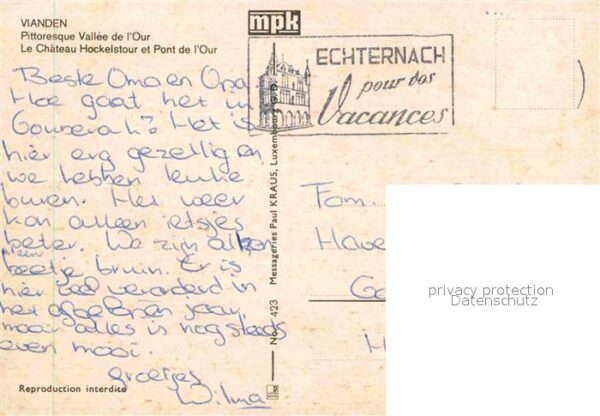 VIANDEN
Pittoresque Vallée de l'Our
Le Château Hockelstour et Pont de l'Our
Beste Oma en Opa
Hoe gaat het in
Het is
hier erg gezellig en
we hebben leuke
buren. Het weer
kon alleen ietsjes
beter. We zijn allen
een
beetje bruin. Er is
hier veel veranderd in
het afgelopen jaar,
maar alles is nog steeds
even mooi.
groetjes
Wilma
Reproduction interdite
mpk
No. 423 Messageries Paul KRAUS, Luxembourg
ECHTERNACH
pour vos
Vacances
Fam.
Have
Ge
H
privacy protection
Datenschutz